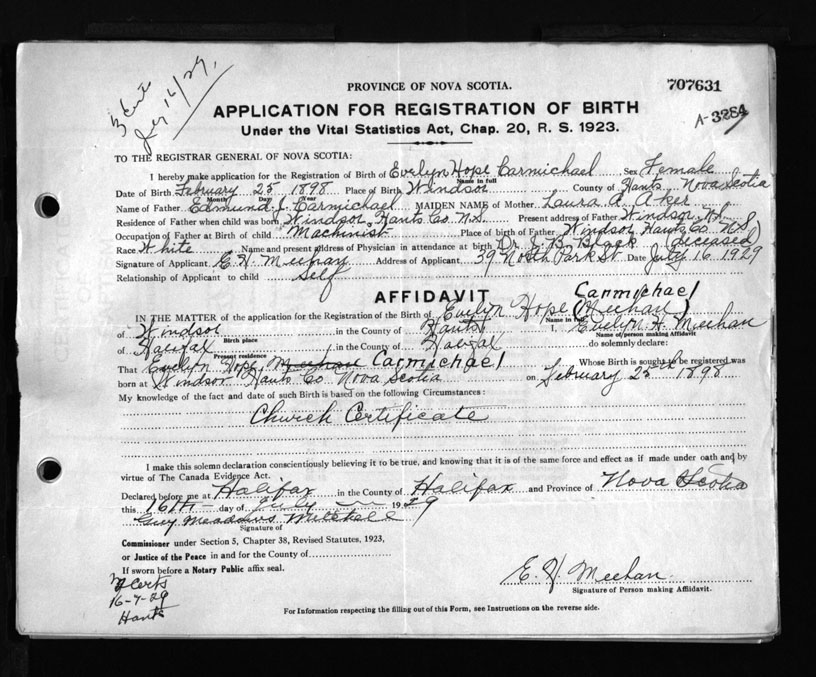 3 Certs
July 16/29,
PROVINCE OF NOVA SCOTIA.
707631
APPLICATION FOR REGISTRATION OF BIRTH
A-3284
Under the Vital Statistics Act, Chap. 20, R. S. 1923.
TO THE REGISTRAR GENERAL OF NOVA SCOTIA:
I hereby make application for the Registration of Birth of Evelyn Hope Carmichael Sex Female
Name in full
Date of Birth February 25 1898 Place of Birth Windsor County of Hants Nova Scotia
Month Day Year
Name of Father Edmund J. Carmichael MAIDEN NAME of Mother Laura A. Aker
Residence of Father when child was born Windsor, Hants Co. N.S. Present address of Father Windsor N.S.
Occupation of Father at Birth of child Machinist Place of birth of Father Windsor Hants Co. N.S.
Race White Name and present address of Physician in attendance at birth Dr. J. B. Black (deceased)
Signature of Applicant E. H. Meehan Address of Applicant 39 North Park St Date July 16 1929
Relationship of Applicant to child Self
AFFIDAVIT
Carmichael
IN THE MATTER of the application for the Registration of the Birth of Evelyn Hope (Meehan)
Name in full
of Windsor in the County of Hants I, Evelyn H. Meehan
Birth place Name of person making Affidavit
of Halifax in the County of Halifax do solemnly declare:
Present residence
That Evelyn Hope Meehan Carmichael Whose Birth is sought to be registered was
born at Windsor Hants Co Nova Scotia on February 25th 1898
My knowledge of the fact and date of such Birth is based on the following Circumstances:
Church Certificate
I make this solemn declaration conscientiously believing it to be true, and knowing that it is of the same force and effect as if made under oath and by
virtue of The Canada Evidence Act.
Declared before me at Halifax in the County of Halifax and Province of Nova Scotia
this 16th day of July 1929
Guy Meadows Mitchell
Signature of
Commissioner under Section 5, Chapter 38, Revised Statutes, 1923,
or Justice of the Peace in and for the County of
If sworn before a Notary Public affix seal.
Certs
16-7-29
Hants
E. H. Meehan
Signature of Person making Affidavit.
For Information respecting the filling out of this Form, see Instructions on the reverse side.